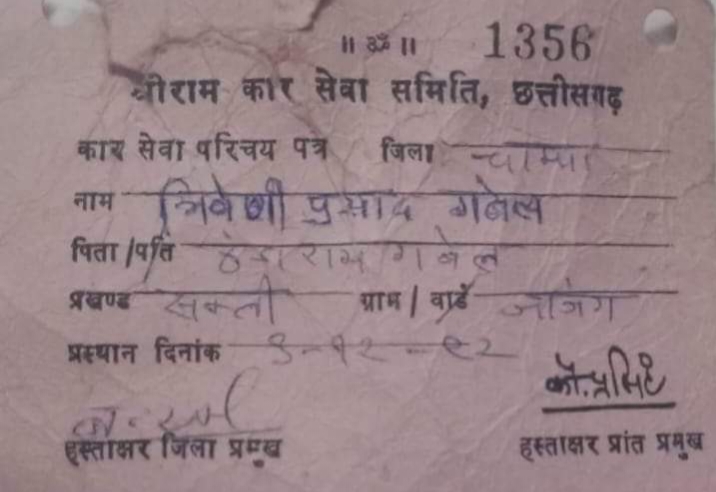 ॥ ॐ ॥ 1356
श्रीराम कार सेवा समिति, छत्तीसगढ़
कार सेवा परिचय पत्र जिला चाम्पा
नाम त्रिवेणी प्रसाद गबेल
पिता/पति ठंडा राम गबेल
प्रखण्ड सक्ती ग्राम/वार्ड जाजंग
प्रस्थान दिनांक १-१२-९२
हस्ताक्षर जिला प्रमुख हस्ताक्षर प्रांत प्रमुख